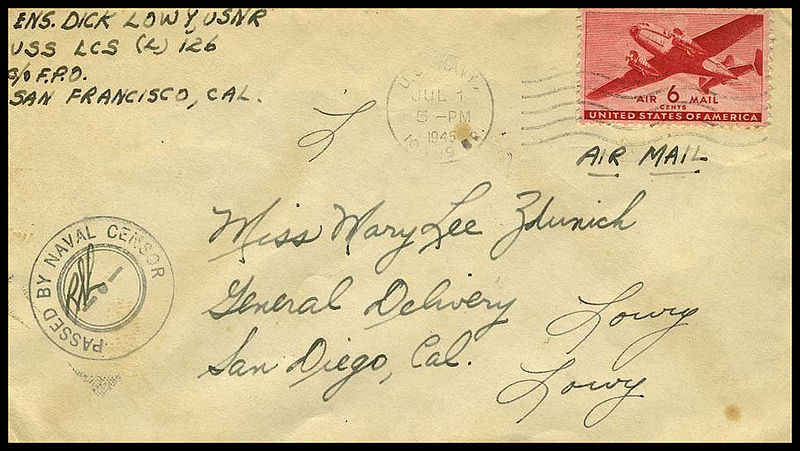 ENS. DICK LOWY, USNR
USS LCS (L) 126
c/o F.P.O.
SAN FRANCISCO, CAL.
U.S. NAVY
JUL 1
5-PM
1945
BR.
AIR 6 MAIL
CENTS
UNITED STATES OF AMERICA
AIR MAIL
L
Miss Mary Lee Zdunich
General Delivery
San Diego, Cal.
Lowy
Lowy
PASSED BY NAVAL CENSOR